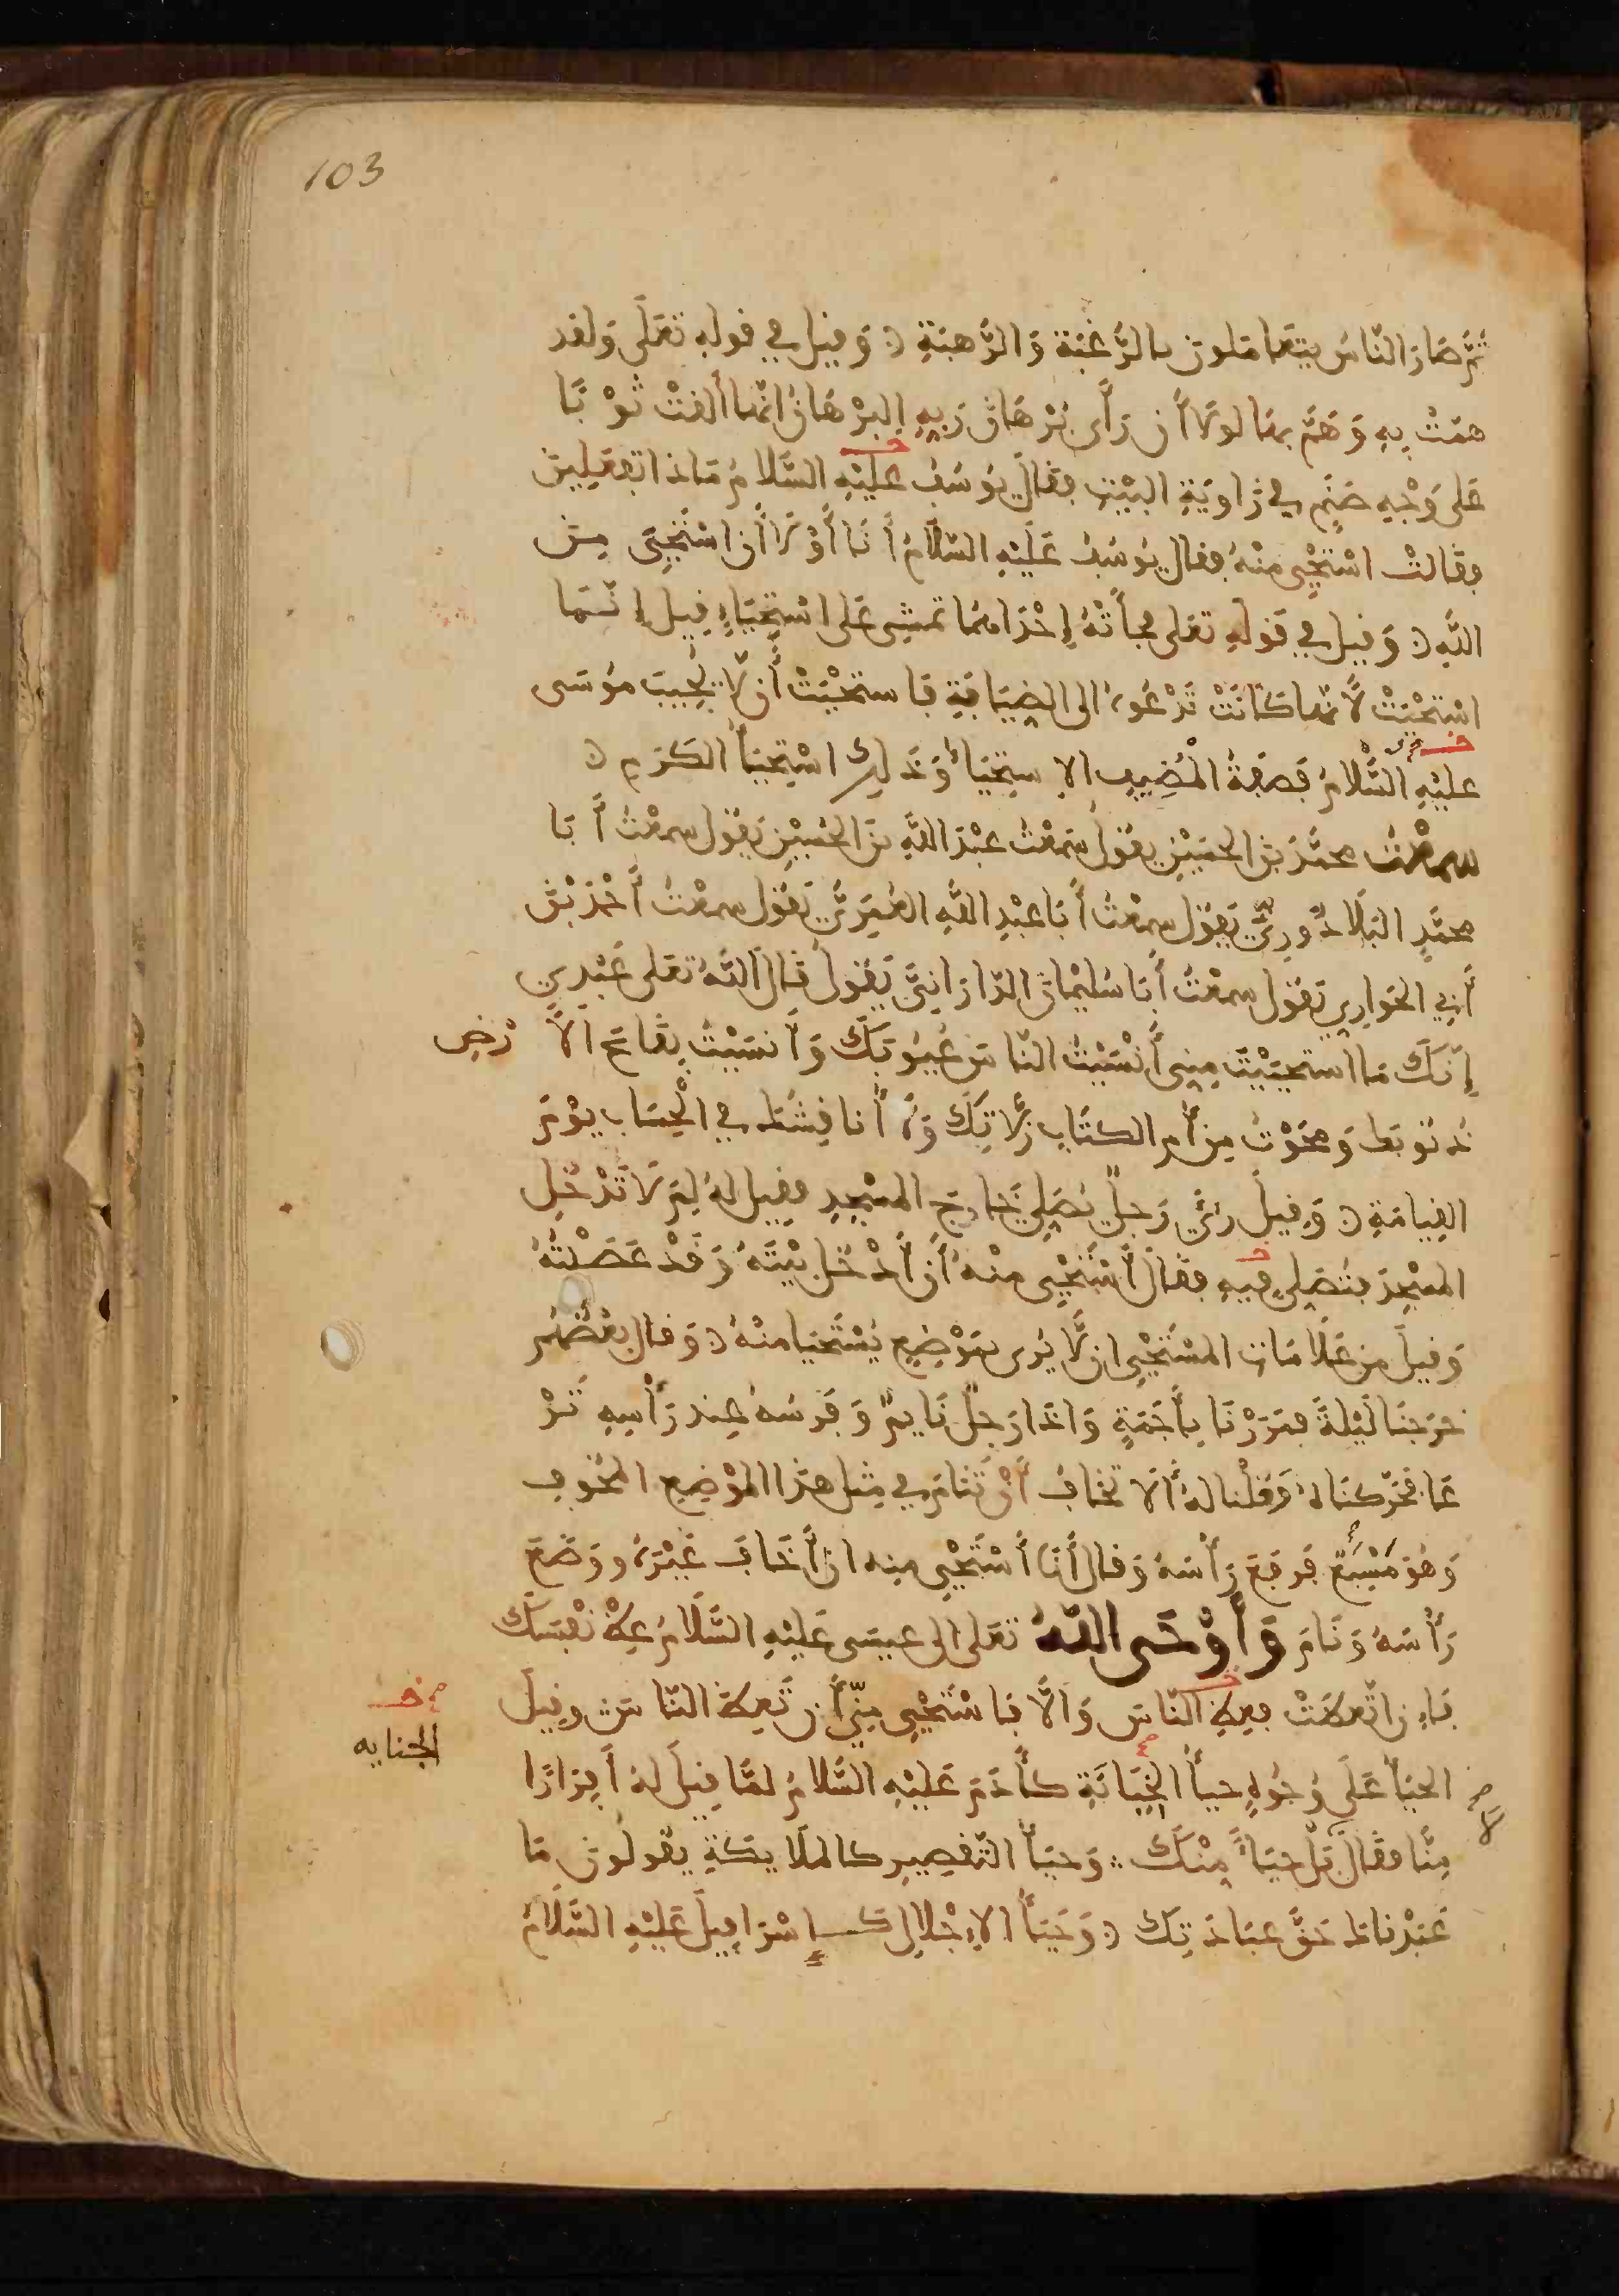 103
ثُمَّ صَارَ النَّاسُ يتَعَامَلون بالرَّغْبَة وَالرَّهبَةِ وَقيل في قولهِ تعَلَى وَلقد
همَّتْ بِهِ وَهَمَّ بهَا لولَا أَن رَأَى بُرْهَانَ رَبِهِ البرْهَانُ انّها ألقتْ ثَوْبًا
عَلى وَجْهِ صَنَمٍ في زَاويَةِ البيْتِ فقَالَ يُوسُفُ عليْهِ السَّلامُ مَاذا تفعَلِينَ
فقَالتْ اسْتَحْيِى منْهُ فقال يُوسُفُ عَلَيْهِ السَّلَامُ أَنَا أَوْلَى أَن اسْتَحْيِىَ مِنَ
اللَّهِ وَقيل في قَولهِ تعَلى فجَأَتْهُ إِحْدَاهمَا تمشِى عَلى اسْتِحْيَاءٍ قِيل إِنَّمَا
اسْتَحْيَتْ لأَنّها كَانَتْ تَدْعُوهُ الى الضِيَافَةِ فَاستحْيَتْ أَن لَّا يُجِيبَ موُسَى
عليْهِ السَّلامُ فَصِفَةُ الْمُضِيفِ الاِستِحْيَاءُ وَذَلِك اسْتِحْيَاُ الكَرَمِ
سمعْتُ محمَّدَ بنَ الحسَيْنِ يقُولُ سَمعْتُ عبْدَ اللَّهِ بنَ الحُسَيْنِ يَقُول سمعْتُ أَبَا
محمَّدٍ البَلَاذُورِيَّ يَقُول سمعْتُ أَبَا عَبْدِ اللَّهِ العُمَرِيَّ يَقُول سمعْتُ أَحْمَدَ بْنَ
أَبِي الحَوارِي يَقُول سمعْتُ أَبَا سُليْمَانَ الدَّارَانِيَّ يَقُولُ قَالَ اللَّهُ تعَلى عَبْدِي
إِنَّكَ مَا استحيَيْتَ مِنِى أَنْسَيْتُ النَّاسَ عُيُوبَكَ وَأَنسَيْتُ بِقَاعَ الأَرْضِ
ذنُوبَك وَمحَوْتُ مِن أُم الكتَابِ زَلَّاتِكَ وَلَا أنَاقِشُك في الْحِسَابِ يوْمَ
القِيامَةِ وَقِيلَ رئِيَ رَجلٌ يُصَلِي خَارجَ المسْجِدِ فقيل لهُ لِمَ لَا تَدْخُل
المسْجِدَ فتُصَلِي فيهِ فقَالَ أَسْتَحْيِى منْهُ أَن أَدْخُل بيْتَهُ وَقَدْ عَصَيْتُهُ
وَقيلَ من عَلَامَات المسْتَحْيِى ان لَّا يُرى بمَوْضِعٍ يُسْتَحْيَا منْهُ وَقال بعْضُهُم
خرَجنَا ليْلةً فمَرَرْنَا بِأَجَمَةٍ وَاذَا رَجلٌ نَايمٌ وَفَرَسُهُ عند رَأْسِهِ تَرْ
عَا فحَرَّكنَاهُ وَقلْنا لهُ أَلا تخَافُ أَنْ تَنَامَ في مِثل هذَا الموْضِعِ المخُوفِ
وَهُوَ مُسْبِعٌ فرفعَ رَأْسَهُ وَقال أَنَا أَسْتَحْيِى منه ان أَخَافَ غَيْرَهُ ووَضَعَ
رَأْسَهُ وَنَامَ وَأَوْحَى اللَّهُ تعَلى الى عيسَى عَليْهِ السَّلَامُ عِظْ نَفْسَكَ
فَاِن اتَّعَظَتْ فعِظِ النَّاس وَالَّا فَاسْتَحْيِى مِنِّى أَن تَعِظَ النَّاسَ وقِيلَ
خـ
الجنايه
الحيَاُ عَلَى وُجُوهٍ حيَاُ الخِيَانَةِ كأَدَمَ عَليْهِ السَّلامُ لمَّا قِيلَ لهُ أَفِرَارًا
مِنَّا فقَالَ بَل حيَاءً مِنْكَ وَحيَاُ التَّقصِيرِ كالملَايكَةِ يقُولُونَ مَا
عَبَدْنَاك حَقَّ عبَادَتِكَ وَحَيَاُ الاِجْلالِ كَإِسْرَافِيلَ عَلَيْهِ السَّلَامُ